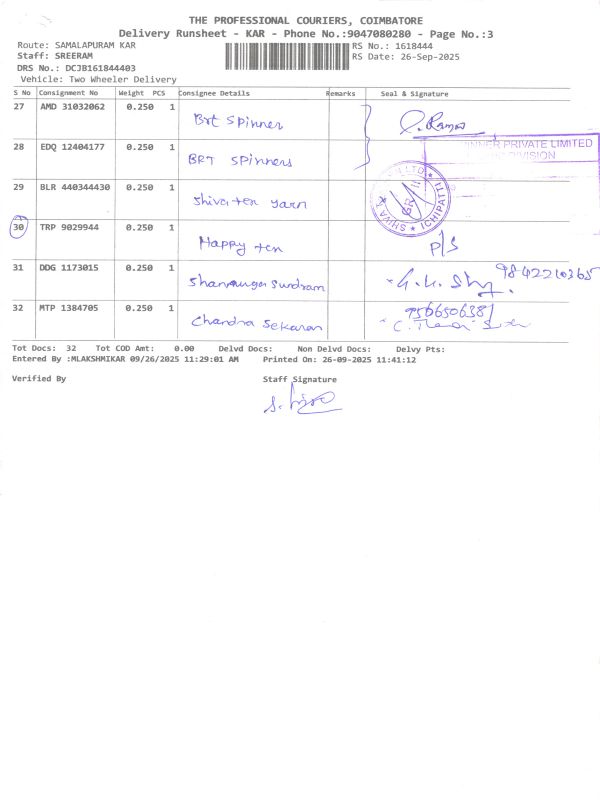 THE PROFESSIONAL COURIERS, COIMBATORE
Delivery Runsheet - KAR - Phone No.:9047080280 - Page No.:3
Route: SAMALAPURAM KAR RS No.: 1618444
Staff: SREERAM RS Date: 26-Sep-2025
DRS No.: DCJB161844403
Vehicle: Two Wheeler Delivery
S No Consignment No Weight PCS Consignee Details Remarks Seal & Signature
27 AMD 31032062 0.250 1 Brt Spinner
28 EDQ 12404177 0.250 1 BRT Spinners
INNER PRIVATE LIMITED
DIVISION
29 BLR 440344430 0.250 1 Shiva tex yarn
30 TRP 9029944 0.250 1 Happy tex P/S
31 DDG 1173015 0.250 1 Shanmuga Sundram 9842210365
32 MTP 1384705 0.250 1 Chandra Sekaran 9566506381
Tot Docs: 32 Tot COD Amt: 0.00 Delvd Docs: Non Delvd Docs: Delvy Pts:
Entered By :MLAKSHMIKAR 09/26/2025 11:29:01 AM Printed On: 26-09-2025 11:41:12
Verified By Staff Signature